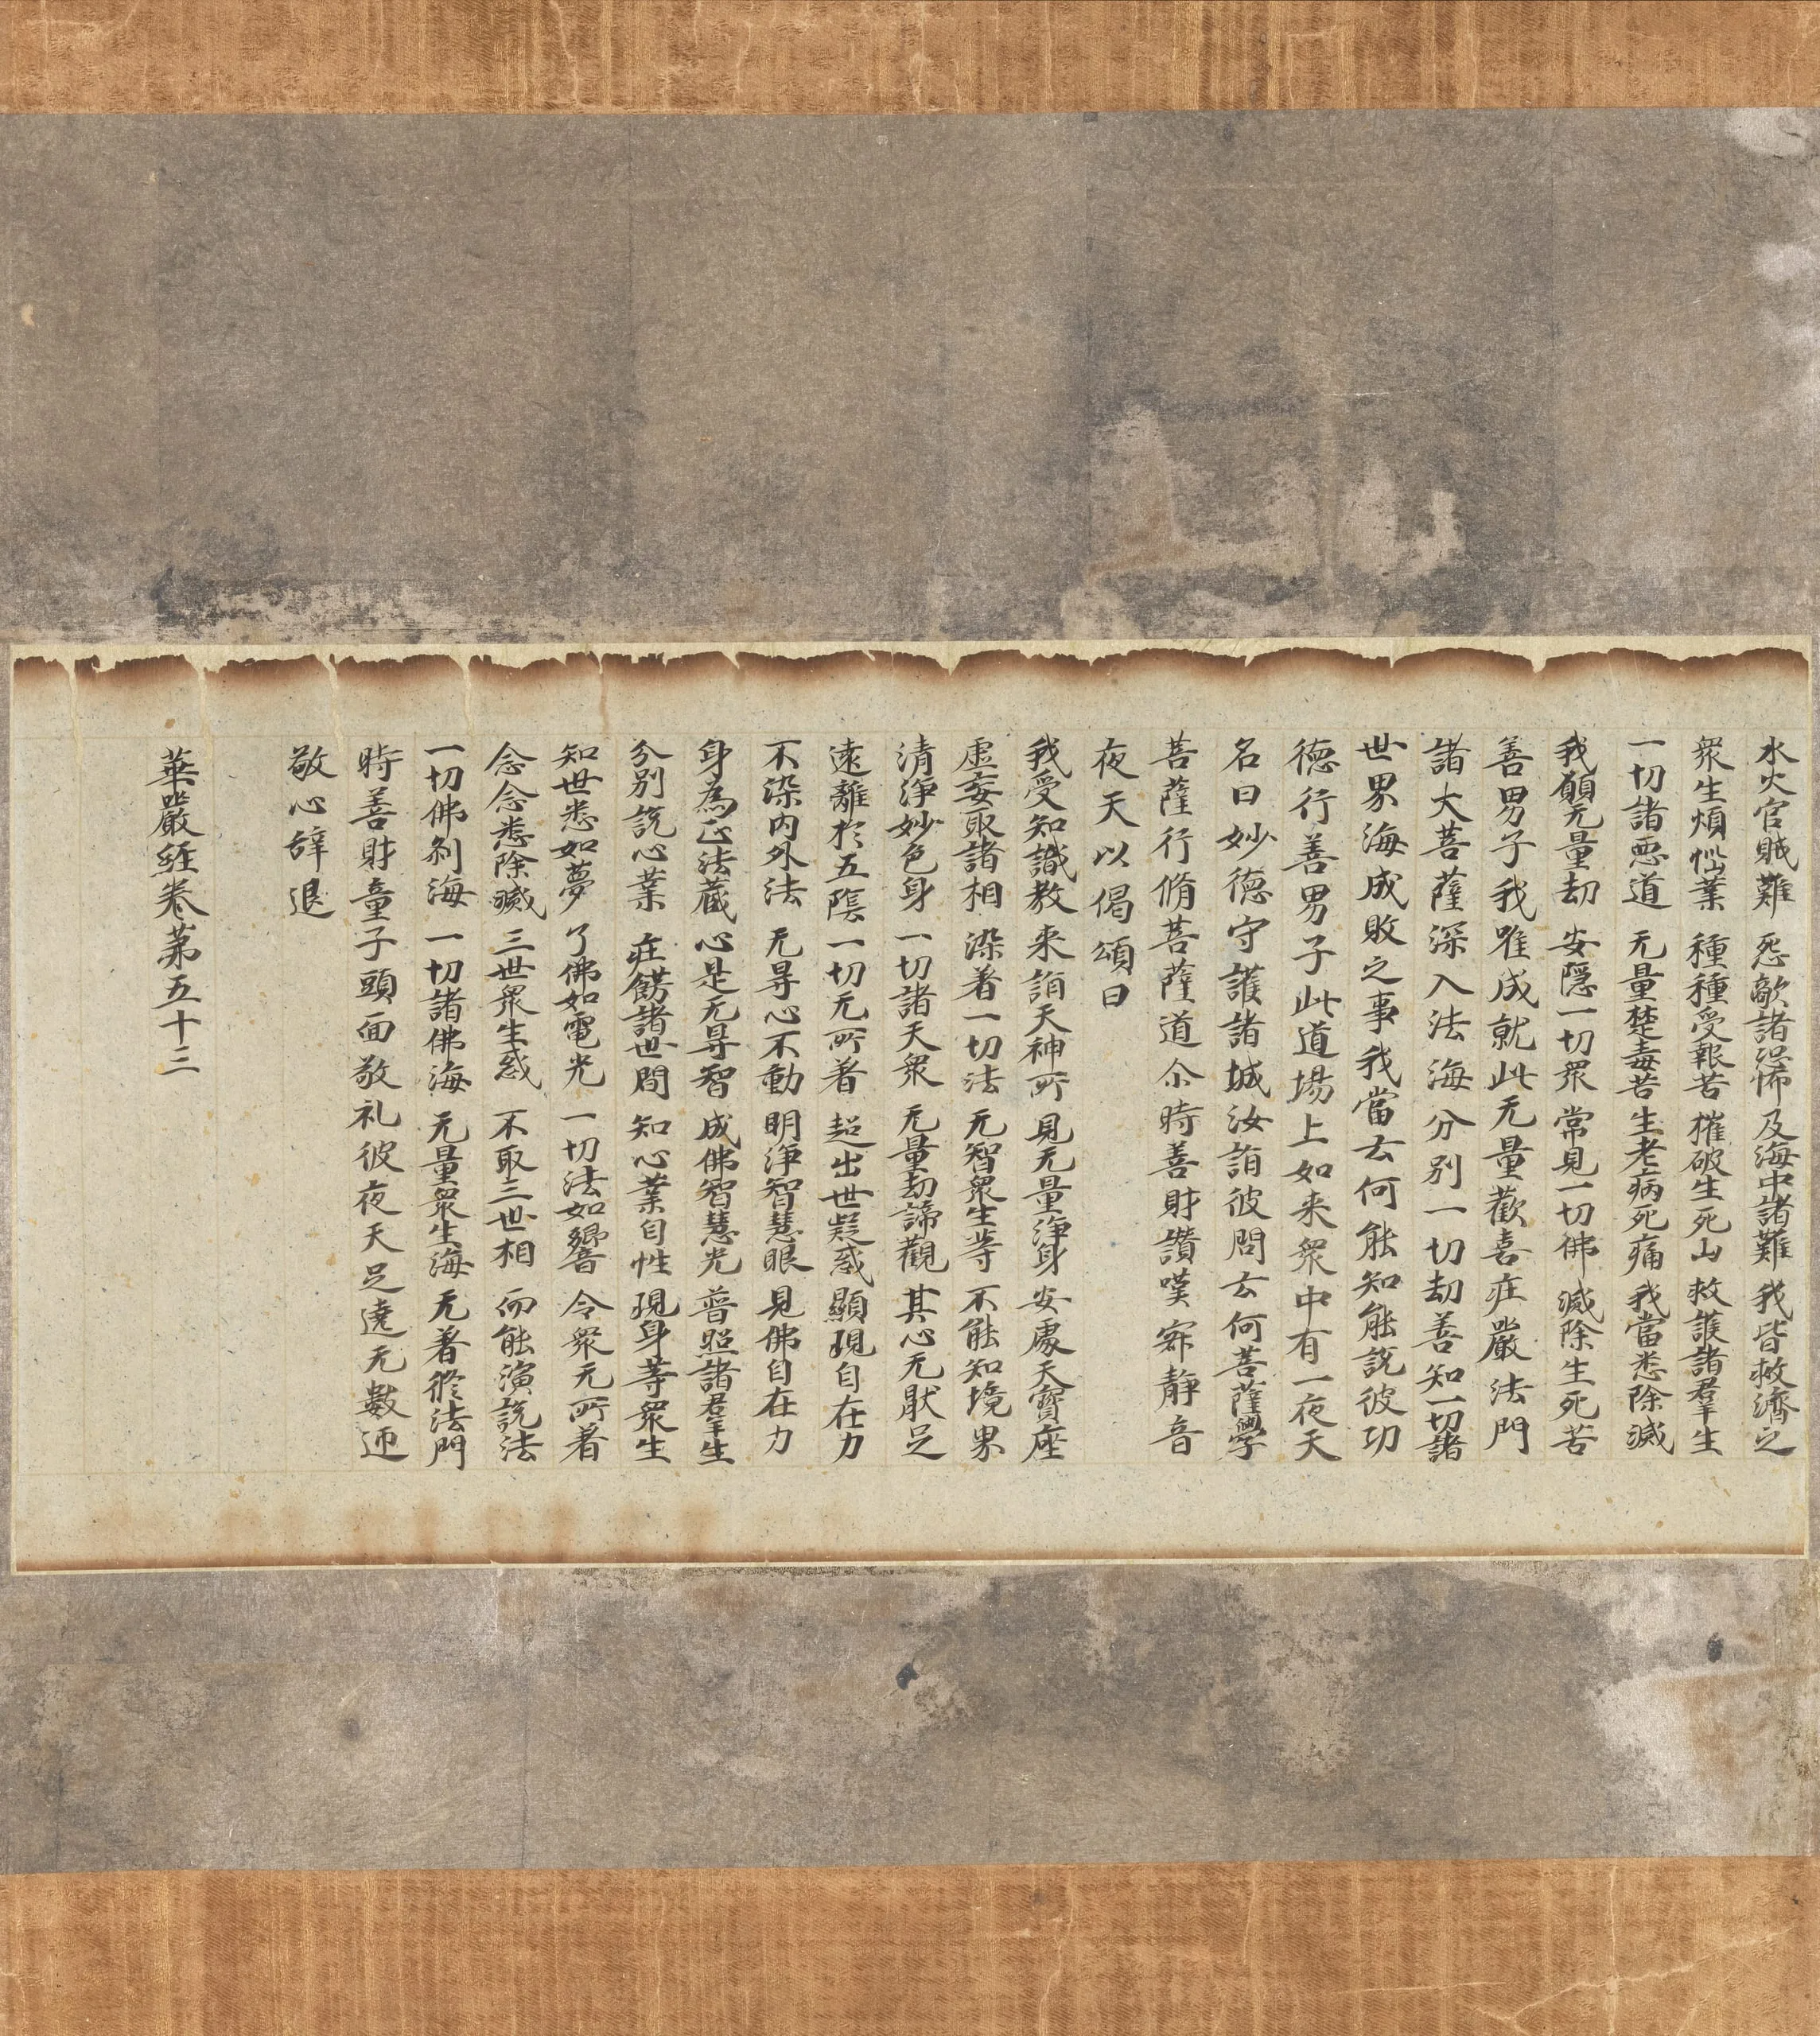 水火官賊難 怨敵諸恐怖 及海中諸難 我皆救濟之
衆生煩惱業 種種受報苦 摧破生死山 救護諸羣生
一切諸惡道 无量楚毒苦 生老病死痛 我當悉除滅
我願无量劫 安隱一切衆 常見一切佛 滅除生死苦
善男子我唯成就此无量歡喜莊嚴法門
諸大菩薩深入法海分別一切劫善知一切諸
世界海成敗之事我當云何能知能說彼功
德行善男子此道場上如來衆中有一夜天
名曰妙德守護諸城汝詣彼問云何菩薩學
菩薩行脩菩薩道尒時善財讚嘆寂靜音
夜天以偈頌曰
我受知識教 来詣天神所 見无量淨身 安處天寶座
虛妄取諸相 染著一切法 无智衆生等 不能知境界
清淨妙色身 一切諸天衆 无量劫諦觀 其心无猒足
遠離於五陰 一切无所著 超出世疑惑 顯現自在力
不染內外法 无㝵心不動 明淨智慧眼 見佛自在力
身為正法藏 心是无㝵智 成佛智慧光 普照諸羣生
分別說心業 莊餝諸世間 知心業自性 現身等衆生
知世悉如夢 了佛如電光 一切法如響 令衆无所著
念念悉除滅 三世衆生惑 不取三世相 而能演說法
一切佛剎海 一切諸佛海 无量衆生海 无著於法門
時善財童子頭面敬礼彼夜天足遶无數迊
敬心辭退
華嚴經卷第五十三